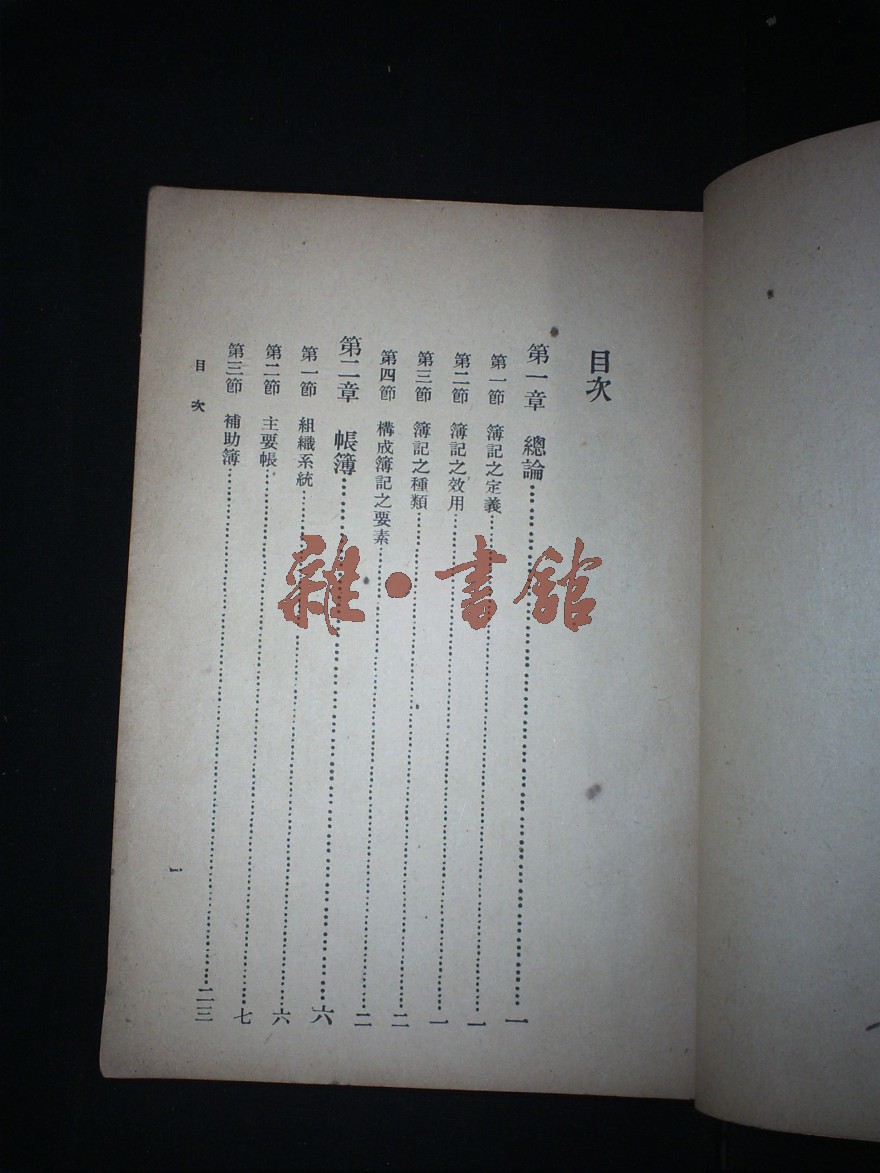 目次
第一章　總論…………一
第一節　簿記之定義…………一
第二節　簿記之效用…………一
第三節　簿記之種類…………二
第四節　構成簿記之要素…………二
第二章　帳簿…………六
第一節　組織系統…………六
第二節　主要帳…………七
第三節　補助簿…………二三
目次
一
雜·書館